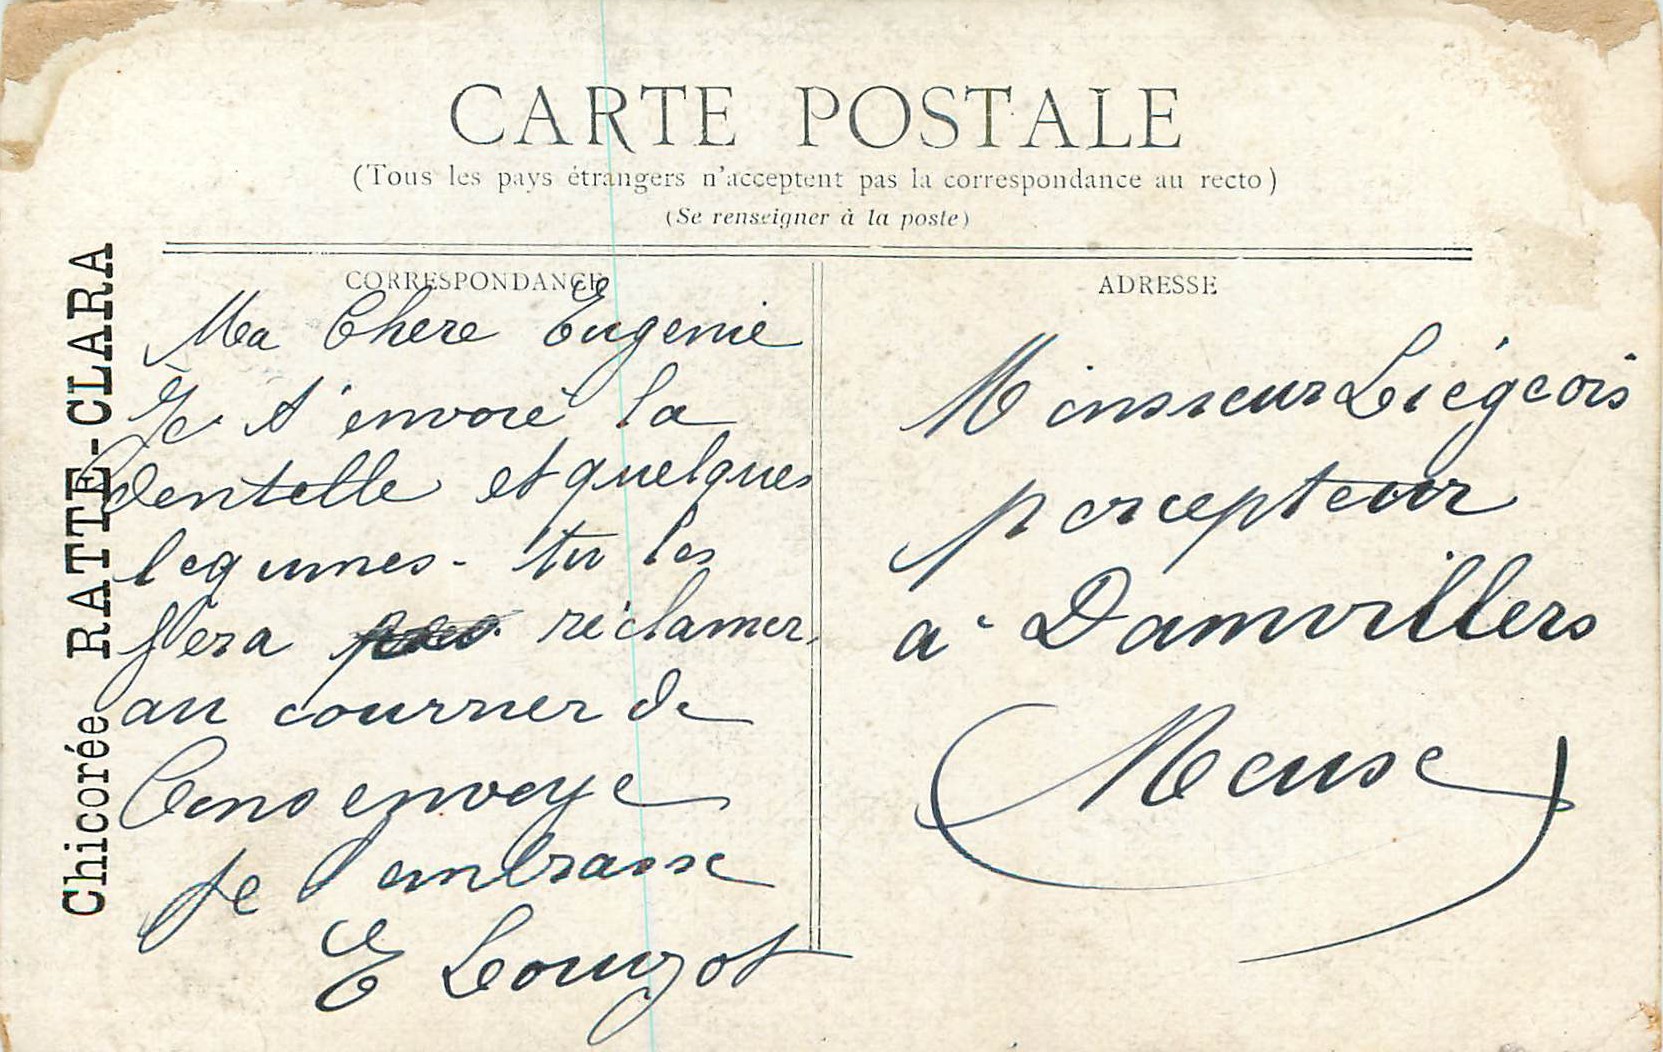 CARTE POSTALE
(Tous les pays étrangers n'acceptent pas la correspondance au recto)
(Se renseigner à la poste)
Chicorée RATTE-CLARA
CORRESPONDANCE
Ma Chere Eugenie
Je t'envoie la
dentelle et quelques
legumes - tu les
fera réclamer
au courrier de
envoye
Je t'embrasse
E
ADRESSE
Monsieur Liégeois
percepteur
à Damvillers
Meuse